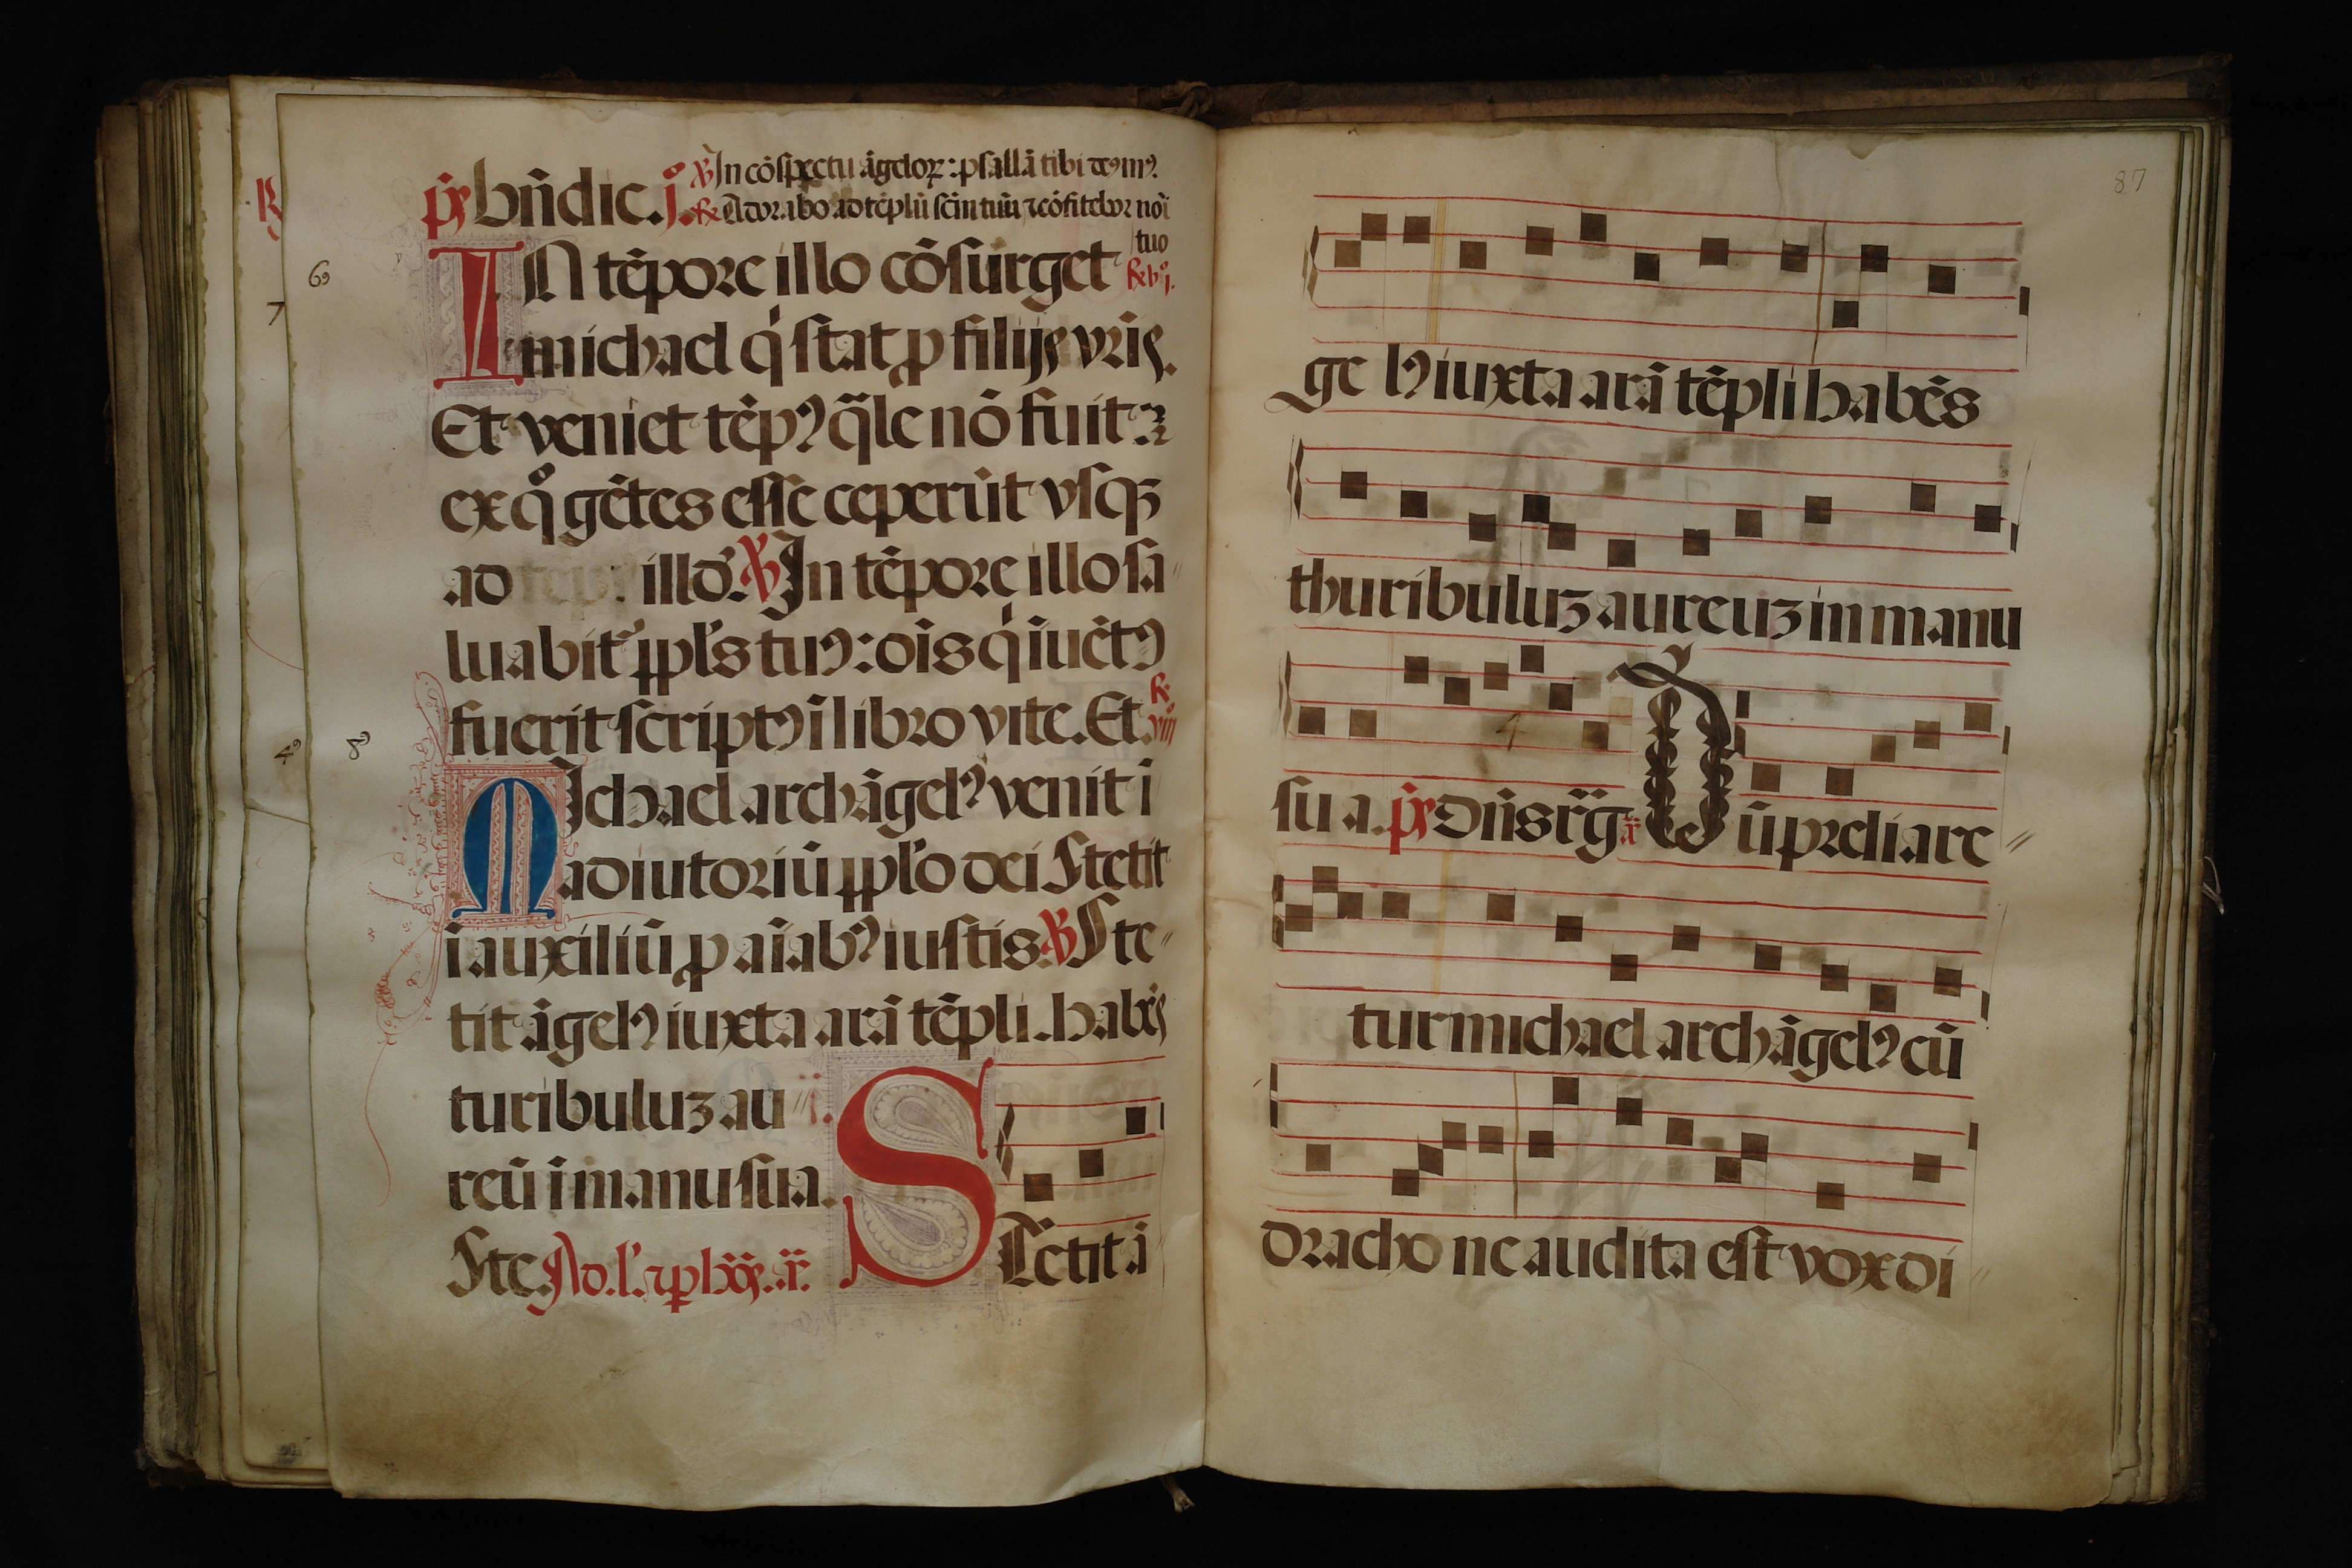 p̄s bn̄dic. j. ℣ In cōspectu āgeloꝝ: psallā tibi deꝰ mꝰ.
℟ Adorabo ad tēplū scm̄ tuū ⁊ cōfitebor noī
tuo
IN tēpore illo cōsurget
michael qͥ stat ꝓ filijs vr̄is.
Et veniet tēpꝰ q̄le nō fuit
ex qͦ gētes esse ceperūt vsqꝫ
ad tēp illd̓. ℣ In tēpore illo sa
luabit᷑ ppl̓s tuꝰ: oīs qͥ īuētꝰ
fuerit scriptꝰ ī libro vite. Et.
MJchael archāgelꝰ venit ī
adiutoriū ppl̓o dei Stetit
ī auxiliū ꝓ aīabꝰ iustis. ℣ Ste
tit āgelꝰ iuxta arā tēpli. habēs
turibuluꝫ au
reū ī manu sua.
Ste. Ad. l̓. ⁊ ꝑ
STetit ā
6
7
4
8
87
ge lꝰ iuxta arā tēpli habēs
thuribuluꝫ aureuꝫ in manu
su a. p̄s Dn̄s r̄g. Dū preliare
tur michael archāgelꝰ cū
dracho ne audita est vox di